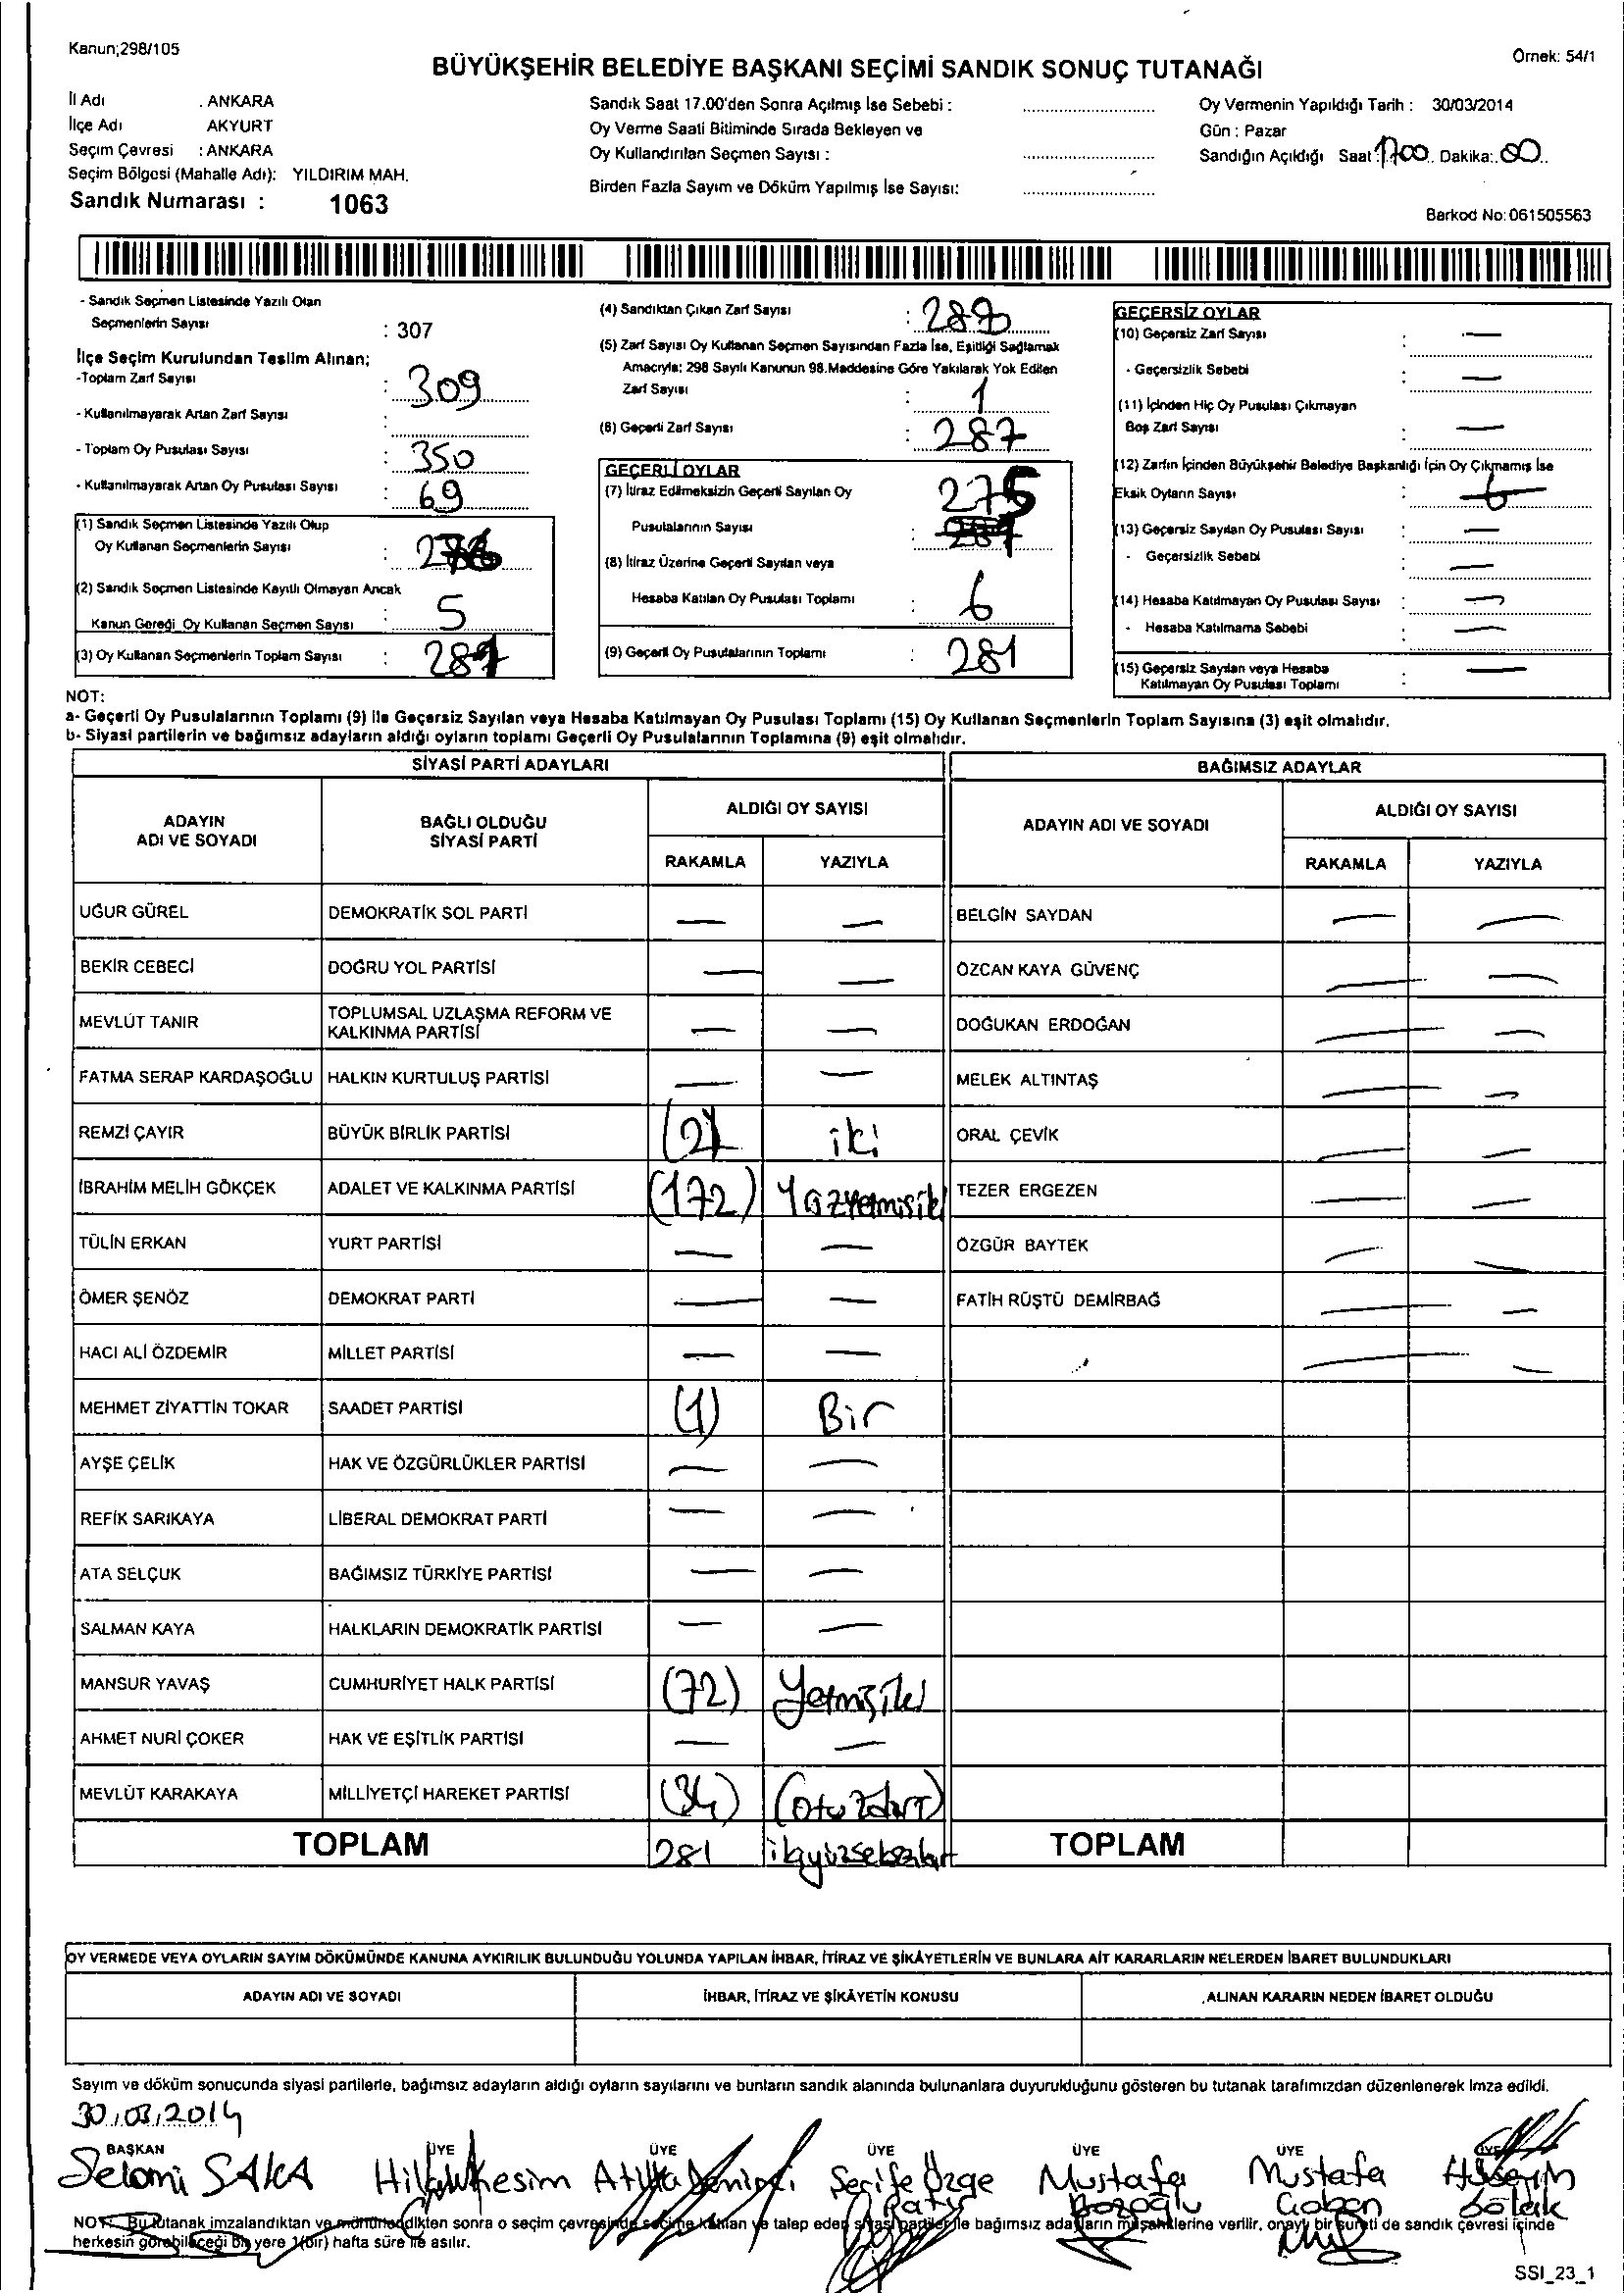 Kanun;298/105
Örnek: 54/1
BÜYÜKŞEHİR BELEDİYE BAŞKANI SEÇİMİ SANDIK SONUÇ TUTANAĞI
İl Adı . ANKARA
İlçe Adı AKYURT
Seçim Çevresi : ANKARA
Seçim Bölgesi (Mahalle Adı): YILDIRIM MAH.
Sandık Numarası : 1063
Sandık Saat 17.00'den Sonra Açılmış İse Sebebi :
Oy Verme Saati Bitiminde Sırada Bekleyen ve
Oy Kullandırılan Seçmen Sayısı :
Birden Fazla Sayım ve Döküm Yapılmış İse Sayısı:
Oy Vermenin Yapıldığı Tarih : 30/03/2014
Gün : Pazar
Sandığın Açıldığı Saat: 1700 Dakika: 00
Barkod No: 061505563
- Sandık Seçmen Listesinde Yazılı Olan
Seçmenlerin Sayısı : 307
İlçe Seçim Kurulundan Teslim Alınan;
-Toplam Zarf Sayısı : 309
- Kullanılmayarak Artan Zarf Sayısı :
- Toplam Oy Pusulası Sayısı : 350
- Kullanılmayarak Artan Oy Pusulası Sayısı : 69
(1) Sandık Seçmen Listesinde Yazılı Olup
Oy Kullanan Seçmenlerin Sayısı :
(2) Sandık Seçmen Listesinde Kayıtlı Olmayan Ancak
Kanun Gereği Oy Kullanan Seçmen Sayısı : 5
(3) Oy Kullanan Seçmenlerin Toplam Sayısı : 287
(4) Sandıktan Çıkan Zarf Sayısı :
(5) Zarf Sayısı Oy Kullanan Seçmen Sayısından Fazla İse, Eşitliği Sağlamak
Amacıyla; 298 Sayılı Kanunun 98.Maddesine Göre Yakılarak Yok Edilen
Zarf Sayısı : 1
(6) Geçerli Zarf Sayısı : 287
GEÇERLİ OYLAR
(7) İtiraz Edilmeksizin Geçerli Sayılan Oy 275
Pusulalarının Sayısı :
(8) İtiraz Üzerine Geçerli Sayılan veya
Hesaba Katılan Oy Pusulası Toplamı : 6
(9) Geçerli Oy Pusulalarının Toplamı : 281
GEÇERSİZ OYLAR
(10) Geçersiz Zarf Sayısı : —
- Geçersizlik Sebebi : —
(11) İçinden Hiç Oy Pusulası Çıkmayan
Boş Zarf Sayısı : —
(12) Zarfın İçinden Büyükşehir Belediye Başkanlığı İçin Oy Çıkmamış İse
Eksik Oyların Sayısı : 6
(13) Geçersiz Sayılan Oy Pusulası Sayısı : —
- Geçersizlik Sebebi : —
(14) Hesaba Katılmayan Oy Pusulası Sayısı : —
- Hesaba Katılmama Sebebi : —
(15) Geçersiz Sayılan veya Hesaba
Katılmayan Oy Pusulası Toplamı : —
NOT:
a- Geçerli Oy Pusulalarının Toplamı (9) ile Geçersiz Sayılan veya Hesaba Katılmayan Oy Pusulası Toplamı (15) Oy Kullanan Seçmenlerin Toplam Sayısına (3) eşit olmalıdır.
b- Siyasi partilerin ve bağımsız adayların aldığı oyların toplamı Geçerli Oy Pusulalarının Toplamına (9) eşit olmalıdır.
SİYASİ PARTİ ADAYLARI
ADAYIN ADI VE SOYADI BAĞLI OLDUĞU SİYASİ PARTİ ALDIĞI OY SAYISI
RAKAMLA YAZIYLA
UĞUR GÜREL DEMOKRATİK SOL PARTİ — —
BEKİR CEBECİ DOĞRU YOL PARTİSİ — —
MEVLÜT TANIR TOPLUMSAL UZLAŞMA REFORM VE KALKINMA PARTİSİ — —
FATMA SERAP KARDAŞOĞLU HALKIN KURTULUŞ PARTİSİ — —
REMZİ ÇAYIR BÜYÜK BİRLİK PARTİSİ (2) iki
İBRAHİM MELİH GÖKÇEK ADALET VE KALKINMA PARTİSİ (172)
TÜLİN ERKAN YURT PARTİSİ — —
ÖMER ŞENÖZ DEMOKRAT PARTİ — —
HACI ALİ ÖZDEMİR MİLLET PARTİSİ — —
MEHMET ZİYATTİN TOKAR SAADET PARTİSİ (1) Bir
AYŞE ÇELİK HAK VE ÖZGÜRLÜKLER PARTİSİ — —
REFİK SARIKAYA LİBERAL DEMOKRAT PARTİ — —
ATA SELÇUK BAĞIMSIZ TÜRKİYE PARTİSİ — —
SALMAN KAYA HALKLARIN DEMOKRATİK PARTİSİ — —
MANSUR YAVAŞ CUMHURİYET HALK PARTİSİ (72) Yetmişiki
AHMET NURİ ÇOKER HAK VE EŞİTLİK PARTİSİ — —
MEVLÜT KARAKAYA MİLLİYETÇİ HAREKET PARTİSİ (34) (otuzdört)
TOPLAM 281
BAĞIMSIZ ADAYLAR
ADAYIN ADI VE SOYADI ALDIĞI OY SAYISI
RAKAMLA YAZIYLA
BELGİN SAYDAN — —
ÖZCAN KAYA GÜVENÇ — —
DOĞUKAN ERDOĞAN — —
MELEK ALTINTAŞ — —
ORAL ÇEVİK — —
TEZER ERGEZEN — —
ÖZGÜR BAYTEK — —
FATİH RÜŞTÜ DEMİRBAĞ — —
TOPLAM
OY VERMEDE VEYA OYLARIN SAYIM DÖKÜMÜNDE KANUNA AYKIRILIK BULUNDUĞU YOLUNDA YAPILAN İHBAR, İTİRAZ VE ŞİKÂYETLERİN VE BUNLARA AİT KARARLARIN NELERDEN İBARET BULUNDUKLARI
ADAYIN ADI VE SOYADI İHBAR, İTİRAZ VE ŞİKÂYETİN KONUSU ALINAN KARARIN NEDEN İBARET OLDUĞU
Sayım ve döküm sonucunda siyasi partilerle, bağımsız adayların aldığı oyların sayılarını ve bunların sandık alanında bulunanlara duyurulduğunu gösteren bu tutanak tarafımızdan düzenlenerek imza edildi.
30.03.2014
BAŞKAN ÜYE ÜYE ÜYE ÜYE ÜYE ÜYE
Selami SAKA Atilla Şerife Özge Mustafa Bozoğlu Mustafa Çoban Hüseyin
NOT: Bu tutanak imzalandıktan ve mühürlendikten sonra o seçim çevresinde seçime katılan ve talep eden siyasi partiler ile bağımsız adayların müşahitlerine verilir, onaylı bir sureti de sandık çevresi içinde
herkesin görebileceği bir yere 1(bir) hafta süre ile asılır.
SSI_23_1